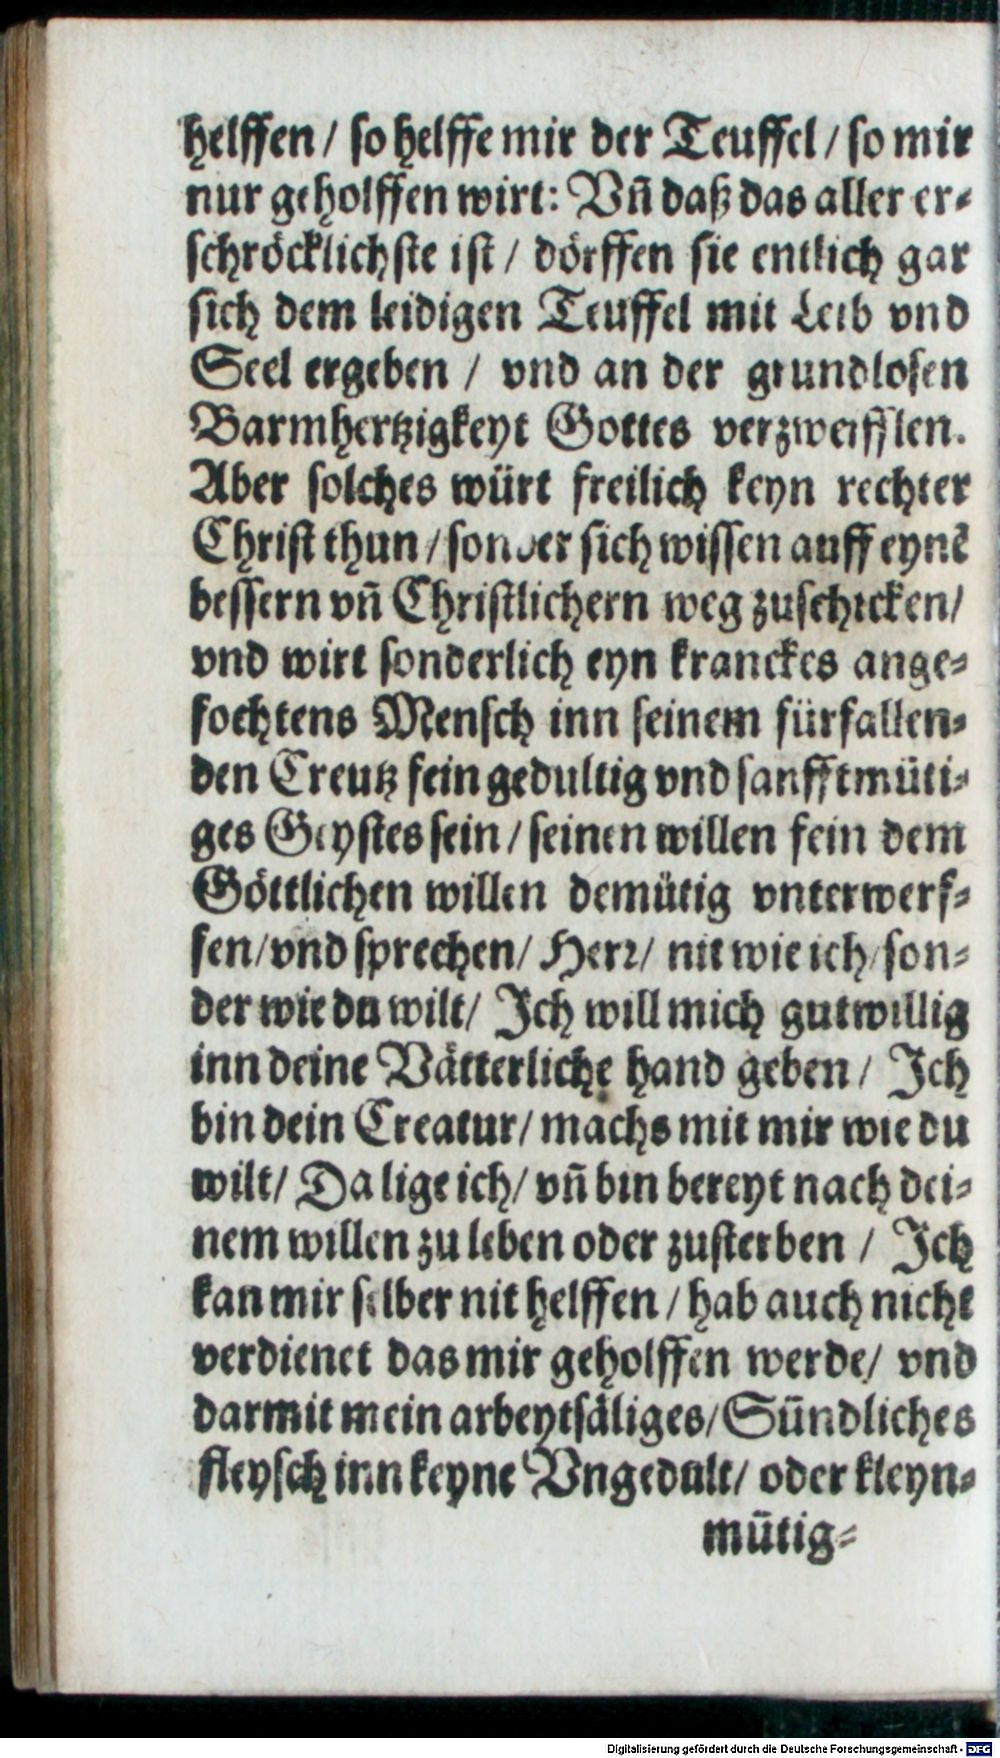 helffen / so helffe mir der Teuffel / so mir
nur geholffen wirt: Vñ daß das aller er-
schröcklichste ist / dörffen sie entlich gar
sich dem leidigen Teuffel mit Leib vnd
Seel ergeben / vnd an der grundlosen
Barmhertzigkeyt Gottes verzweifflen.
Aber solches würt freilich keyn rechter
Christ thun / sonder sich wissen auff eynē
bessern vñ Christlichern weg zuschicken /
vnd wirt sonderlich eyn kranckes ange-
fochtens Mensch inn seinem fürfallen-
den Creutz fein gedultig vnd sanfftmüti-
ges Geystes sein / seinen willen fein dem
Göttlichen willen demütig vnterwerf-
fen / vnd sprechen / Herr / nit wie ich / son-
der wie du wilt / Ich will mich gutwillig
inn deine Vätterliche hand geben / Ich
bin dein Creatur / machs mit mir wie du
wilt / Da lige ich / vñ bin bereyt nach dei-
nem willen zu leben oder zusterben / Ich
kan mir selber nit helffen / hab auch nicht
verdienet das mir geholffen werde / vnd
darmit mein arbeytsäliges / Sündliches
fleysch inn keyne Vngedult / oder kleyn-
mütig-
Digitalisierung gefördert durch die Deutsche Forschungsgemeinschaft - DFG